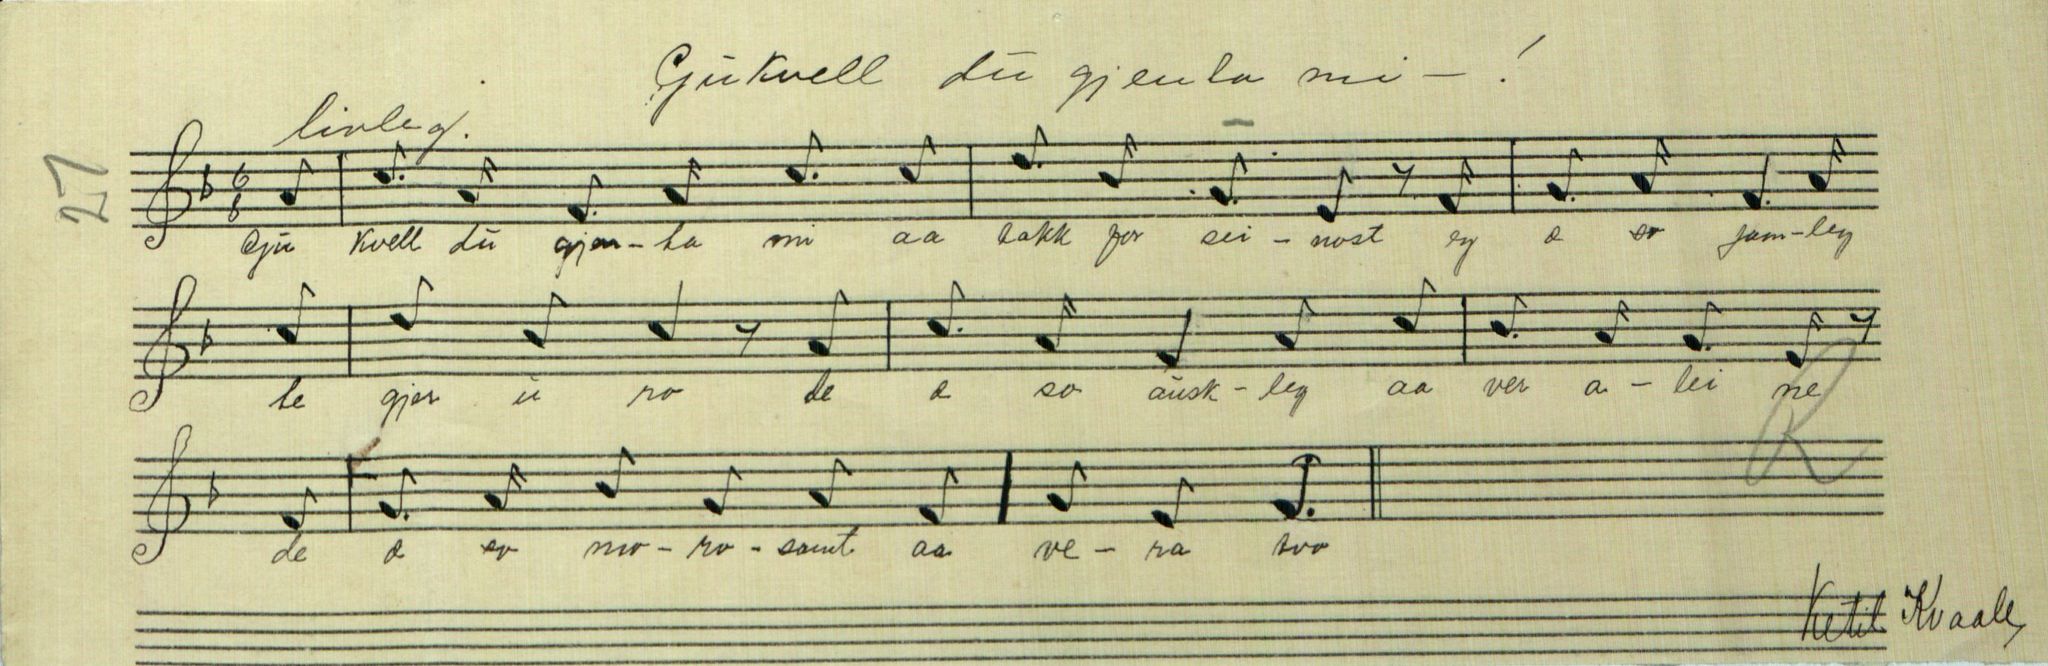 Gukvell du gjenta mi - !
livleg.
27
6
8
Gu kvell du gjen - ta mi aa takk for sei - nost eg æ so jam - leg
te gjer u ro de æ so ausk - leg aa ver a - lei ne
K
de æ so mo - ro - samt aa ve - ra tvo
Ketil Kvaale